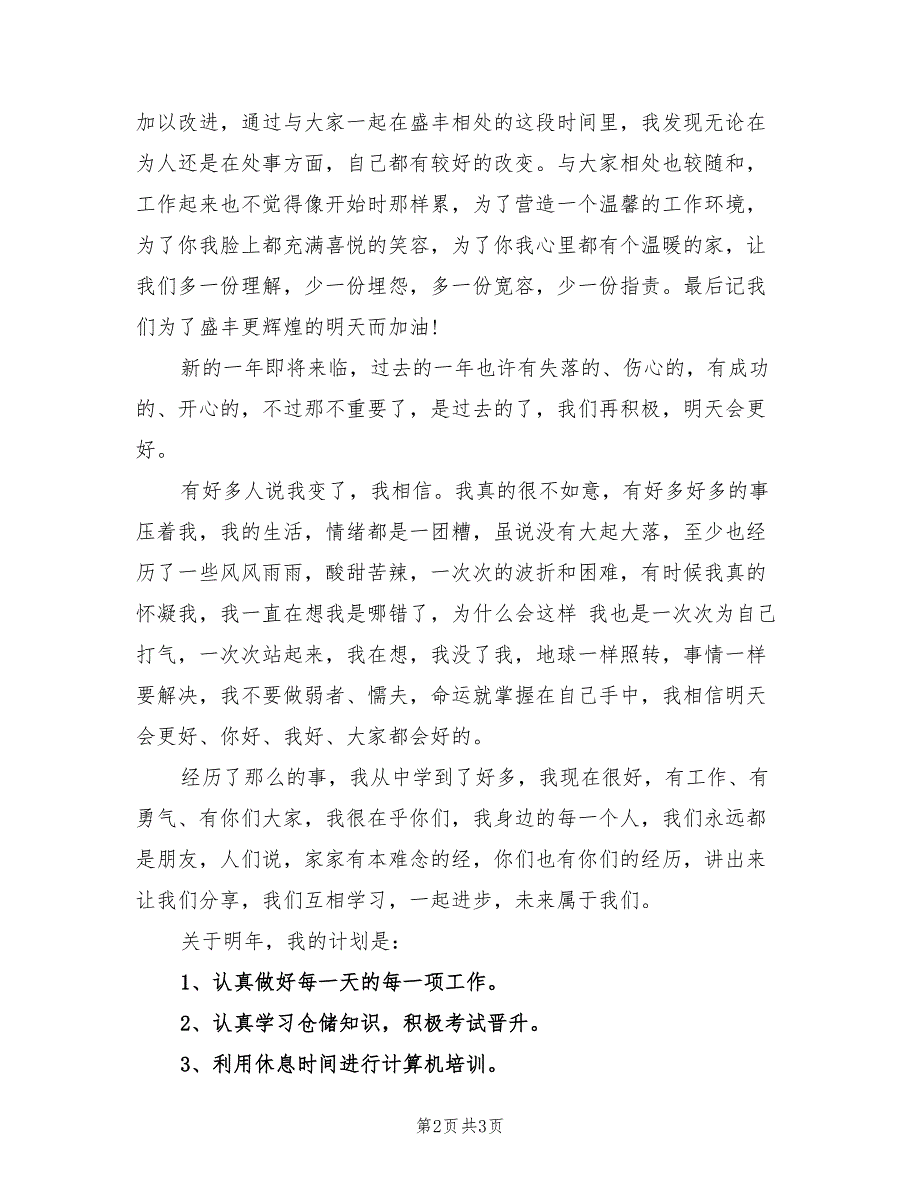 加以改进，通过与大家一起在盛丰相处的这段时间里，我发现无论在
为人还是在处事方面，自己都有较好的改变。与大家相处也较随和，
工作起来也不觉得像开始时那样累，为了营造一个温馨的工作环境，
为了你我脸上都充满喜悦的笑容，为了你我心里都有个温暖的家，让
我们多一份理解，少一份埋怨，多一份宽容，少一份指责。最后记我
们为了盛丰更辉煌的明天而加油!
新的一年即将来临，过去的一年也许有失落的、伤心的，有成功
的、开心的，不过那不重要了，是过去的了，我们再积极，明天会更
好。
有好多人说我变了，我相信。我真的很不如意，有好多好多的事
压着我，我的生活，情绪都是一团糟，虽说没有大起大落，至少也经
历了一些风风雨雨，酸甜苦辣，一次次的波折和困难，有时候我真的
怀凝我，我一直在想我是哪错了，为什么会这样 我也是一次次为自己
打气，一次次站起来，我在想，我没了我，地球一样照转，事情一样
要解决，我不要做弱者、懦夫，命运就掌握在自己手中，我相信明天
会更好、你好、我好、大家都会好的。
经历了那么的事，我从中学到了好多，我现在很好，有工作、有
勇气、有你们大家，我很在乎你们，我身边的每一个人，我们永远都
是朋友，人们说，家家有本难念的经，你们也有你们的经历，讲出来
让我们分享，我们互相学习，一起进步，未来属于我们。
关于明年，我的计划是：
1、认真做好每一天的每一项工作。
2、认真学习仓储知识，积极考试晋升。
3、利用休息时间进行计算机培训。
第2页 共3页